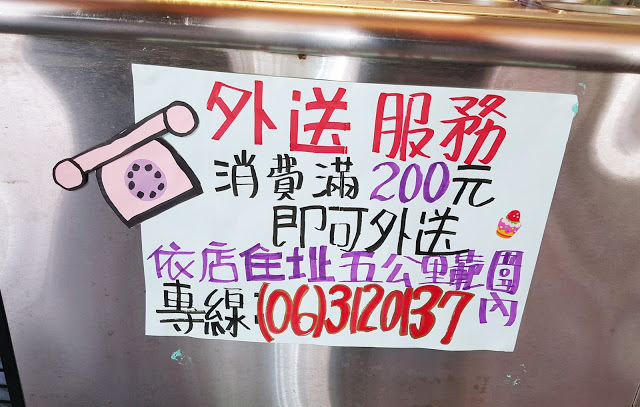 外送服務
消費滿200元
即可外送
依店住址五公里範圍內
專線:(06)3120137